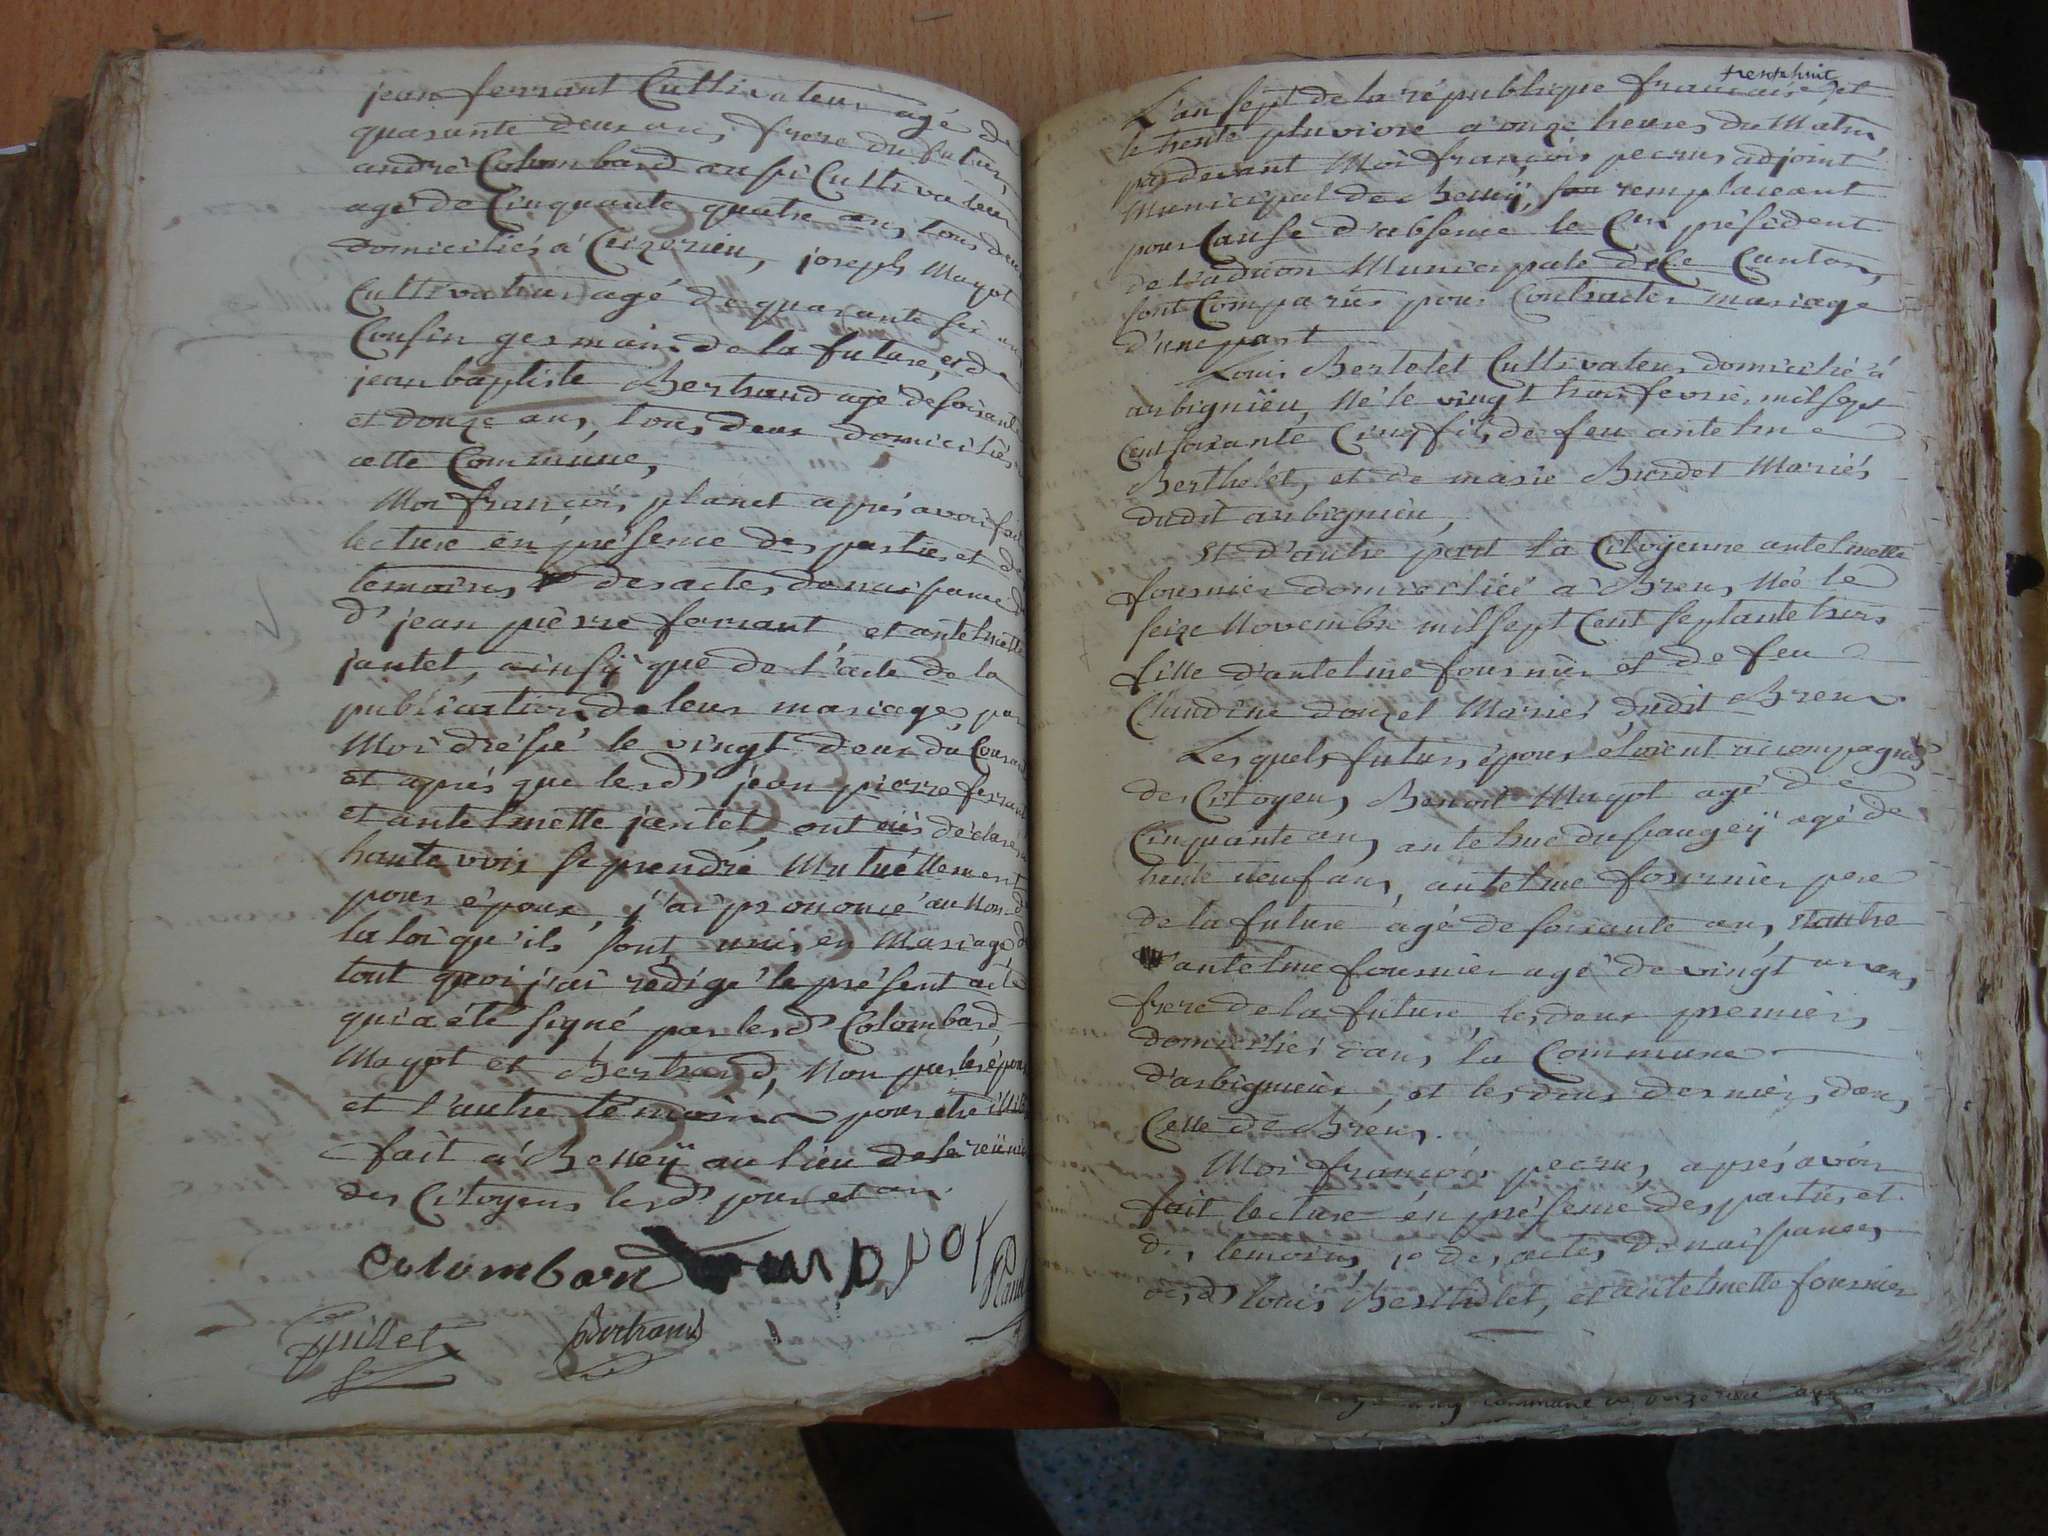 jean ferrant Cultivateur agé de
quarante deux ans, frere du futur,
andré Colombard aussi Cultivateur
agé de Cinquante quatre ans, tous deux
domiciliés à Ceizerieu, joseph Magot
Cultivateur agé de quarante six ans
Cousin germain de la future, et de
jean baptiste Bertrand agé de soixante
et douze ans, tous deux domiciliés
cette Commune,
Moi françois planet après avoir fait
lecture en présence des parties et de
temoins des actes de naissance
d'jean pierre ferrant et antelmette
jantet, ainsÿ que de l'acte de la
publication de leur mariage, par
Moi dressé le vingt deux du Courant
et aprés que lesd jean pierre ferrant
et antelmette jantet, ont eus déclaré
haute voix se prendre Mutuéllement
pour époux, j'ai prononcé au Nom d
la loi qu'ils sont unis en Mariage d
tout quoi j'ai rédigé le présent acte
qui a été signé par lesd Colombard
Magot et Bertrand, Non par les époux
et l'autre témoin pour être
fait à Belleÿ au lieu de la reünion
des Citoyens lesd jour et an.
colombard
Bertrand
trente huit
L'an sept de la république francaise, et
le trente pluviose a onze heures du Matin
pardevant Moi françois pecrus adjoint
Municipal de Belleÿ, remplaceant
pour Cause d'absence le Cen président
de l'adtion Municipale de Ce Canton,
sont Comparus pour Contracter mariage
d'une part
Louis Bertelet Cultivateur domicilié à
arbignieu, Né le vingt trois fevrier mil sept
Cent soixante Cinq fils de feu antelme
Berthelet, et de marie Burdet Mariés
dudit arbignieu,
Et d'autre part la Citoÿenne antelmette
fournier domiciliée à Brens, Née le
seize Novembre mil sept Cent septante trois
fille d'antelme fournier et de feu
Claudine douzel Mariés dudit Brens
Lesquels futurs époux étoient accompagnés
des Citoyens, Benoit Magot agé de
Cinquante ans, antelme dupaugeÿ agé de
trente neuf ans, antelme fournier pere
de la future agé de soixante ans, et autre
antelme fournier agé de vingt un ans,
frere de la future, les deux premiers
domiciliés dans la Commune
d'arbignieu, et les deux derniers dans
Celle de Brens.
Moi françois pecrus, aprés avoir
fait lecture en présence des parties et
des temoins, 1o des actes de naissances
desd Louis Berthelet, et antelmette fournier